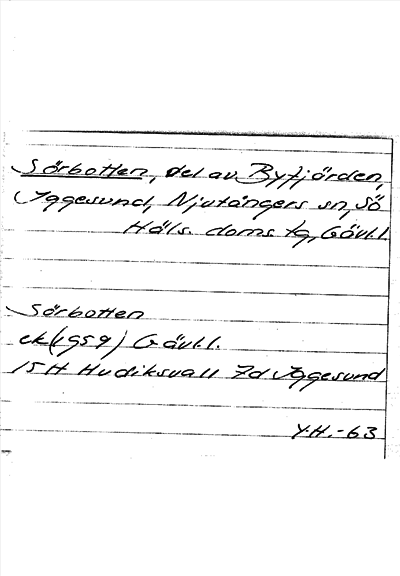 Sörbotten, del av Byfjörden,
Iggesund, Njutångers sn, Sö
Häls. doms tg, Gävl.l.
Sörbotten
ek (1959) Gävl.l.
15H Hudiksvall 7d Iggesund
Y.H.-63